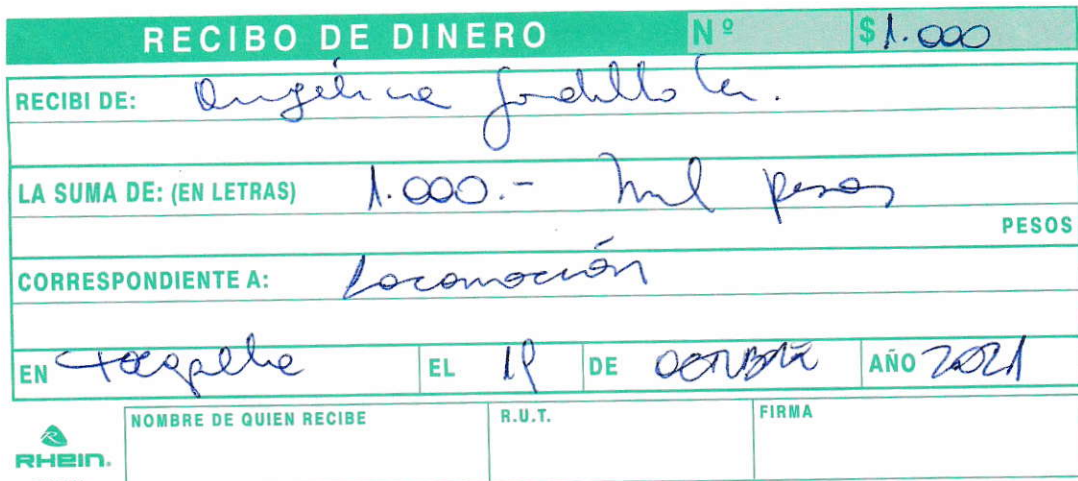 RECIBO DE DINERO Nº $ 1.000
RECIBI DE: Angélica Gordillo
LA SUMA DE: (EN LETRAS) 1.000.- mil pesos
PESOS
CORRESPONDIENTE A: Locomoción
EN EL 19 DE OCTUBRE AÑO 2021
NOMBRE DE QUIEN RECIBE R.U.T. FIRMA
RHEIN.